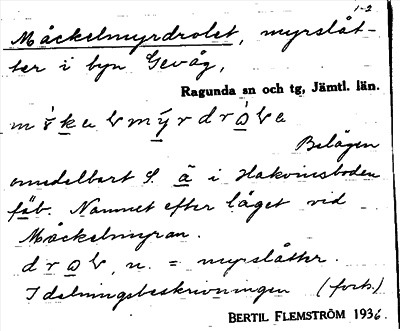 1-2
Måckelmyrdrolet, myrslåt-
ter i byn Gevåg,
Ragunda sn och tg, Jämtl. län.
Belägen
omedelbart S. ä i Hakvinsboden
fäb. Namnet efter läget vid
Måckelmyran.
n. = myrslåtter.
I delningsbeskrivningen (forts.)
BERTIL FLEMSTRÖM 1936.